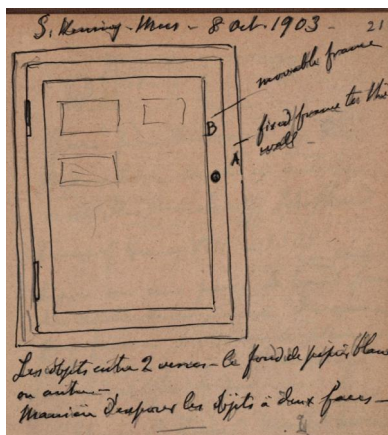 S. Kensing. Mus - 8 Oct. 1903
21
movable frame
B
fixed frame to the
wall -
A
Les objets entre 2 verres - le fond de papier blanc
ou autre -
Manière d'exposer les objets à deux faces -